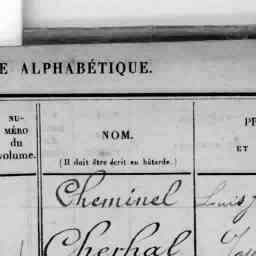 E ALPHABÉTIQUE.
NU-
MÉRO
du
volume.
NOM.
(Il doit être écrit en bâtarde.)
PR
ET
Cheminel Louis J
Cherhal